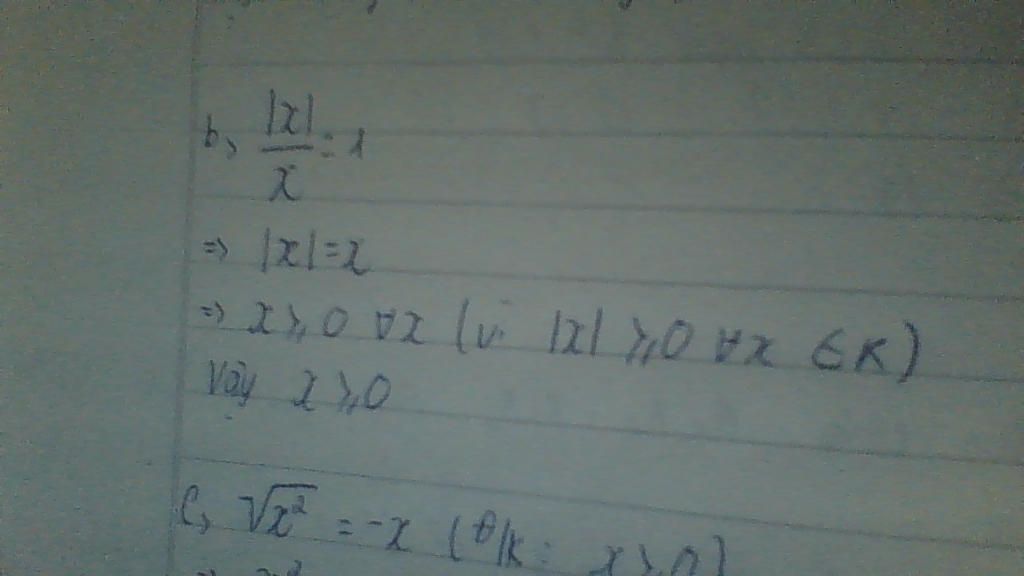 b, |x|/x = 1
=> |x| = x
=> x ⩾ 0 ∀x (vì |x| ⩾ 0 ∀x ∈ R)
Vậy x ⩾ 0
c, √x² = -x (Đ/k: x ⩾ 0)